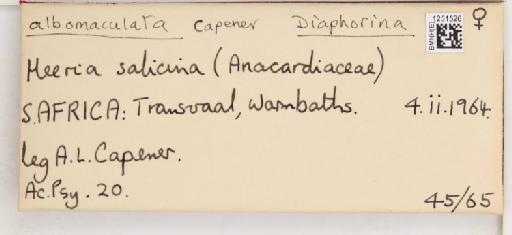 albomaculata Capener Diaphorina ♀
BMNH(E) 1251526
Heeria salicina (Anacardiaceae)
S.AFRICA: Transvaal, Warmbaths. 4.ii.1964.
leg A.L. Capener.
Ac.Psy. 20.
45/65